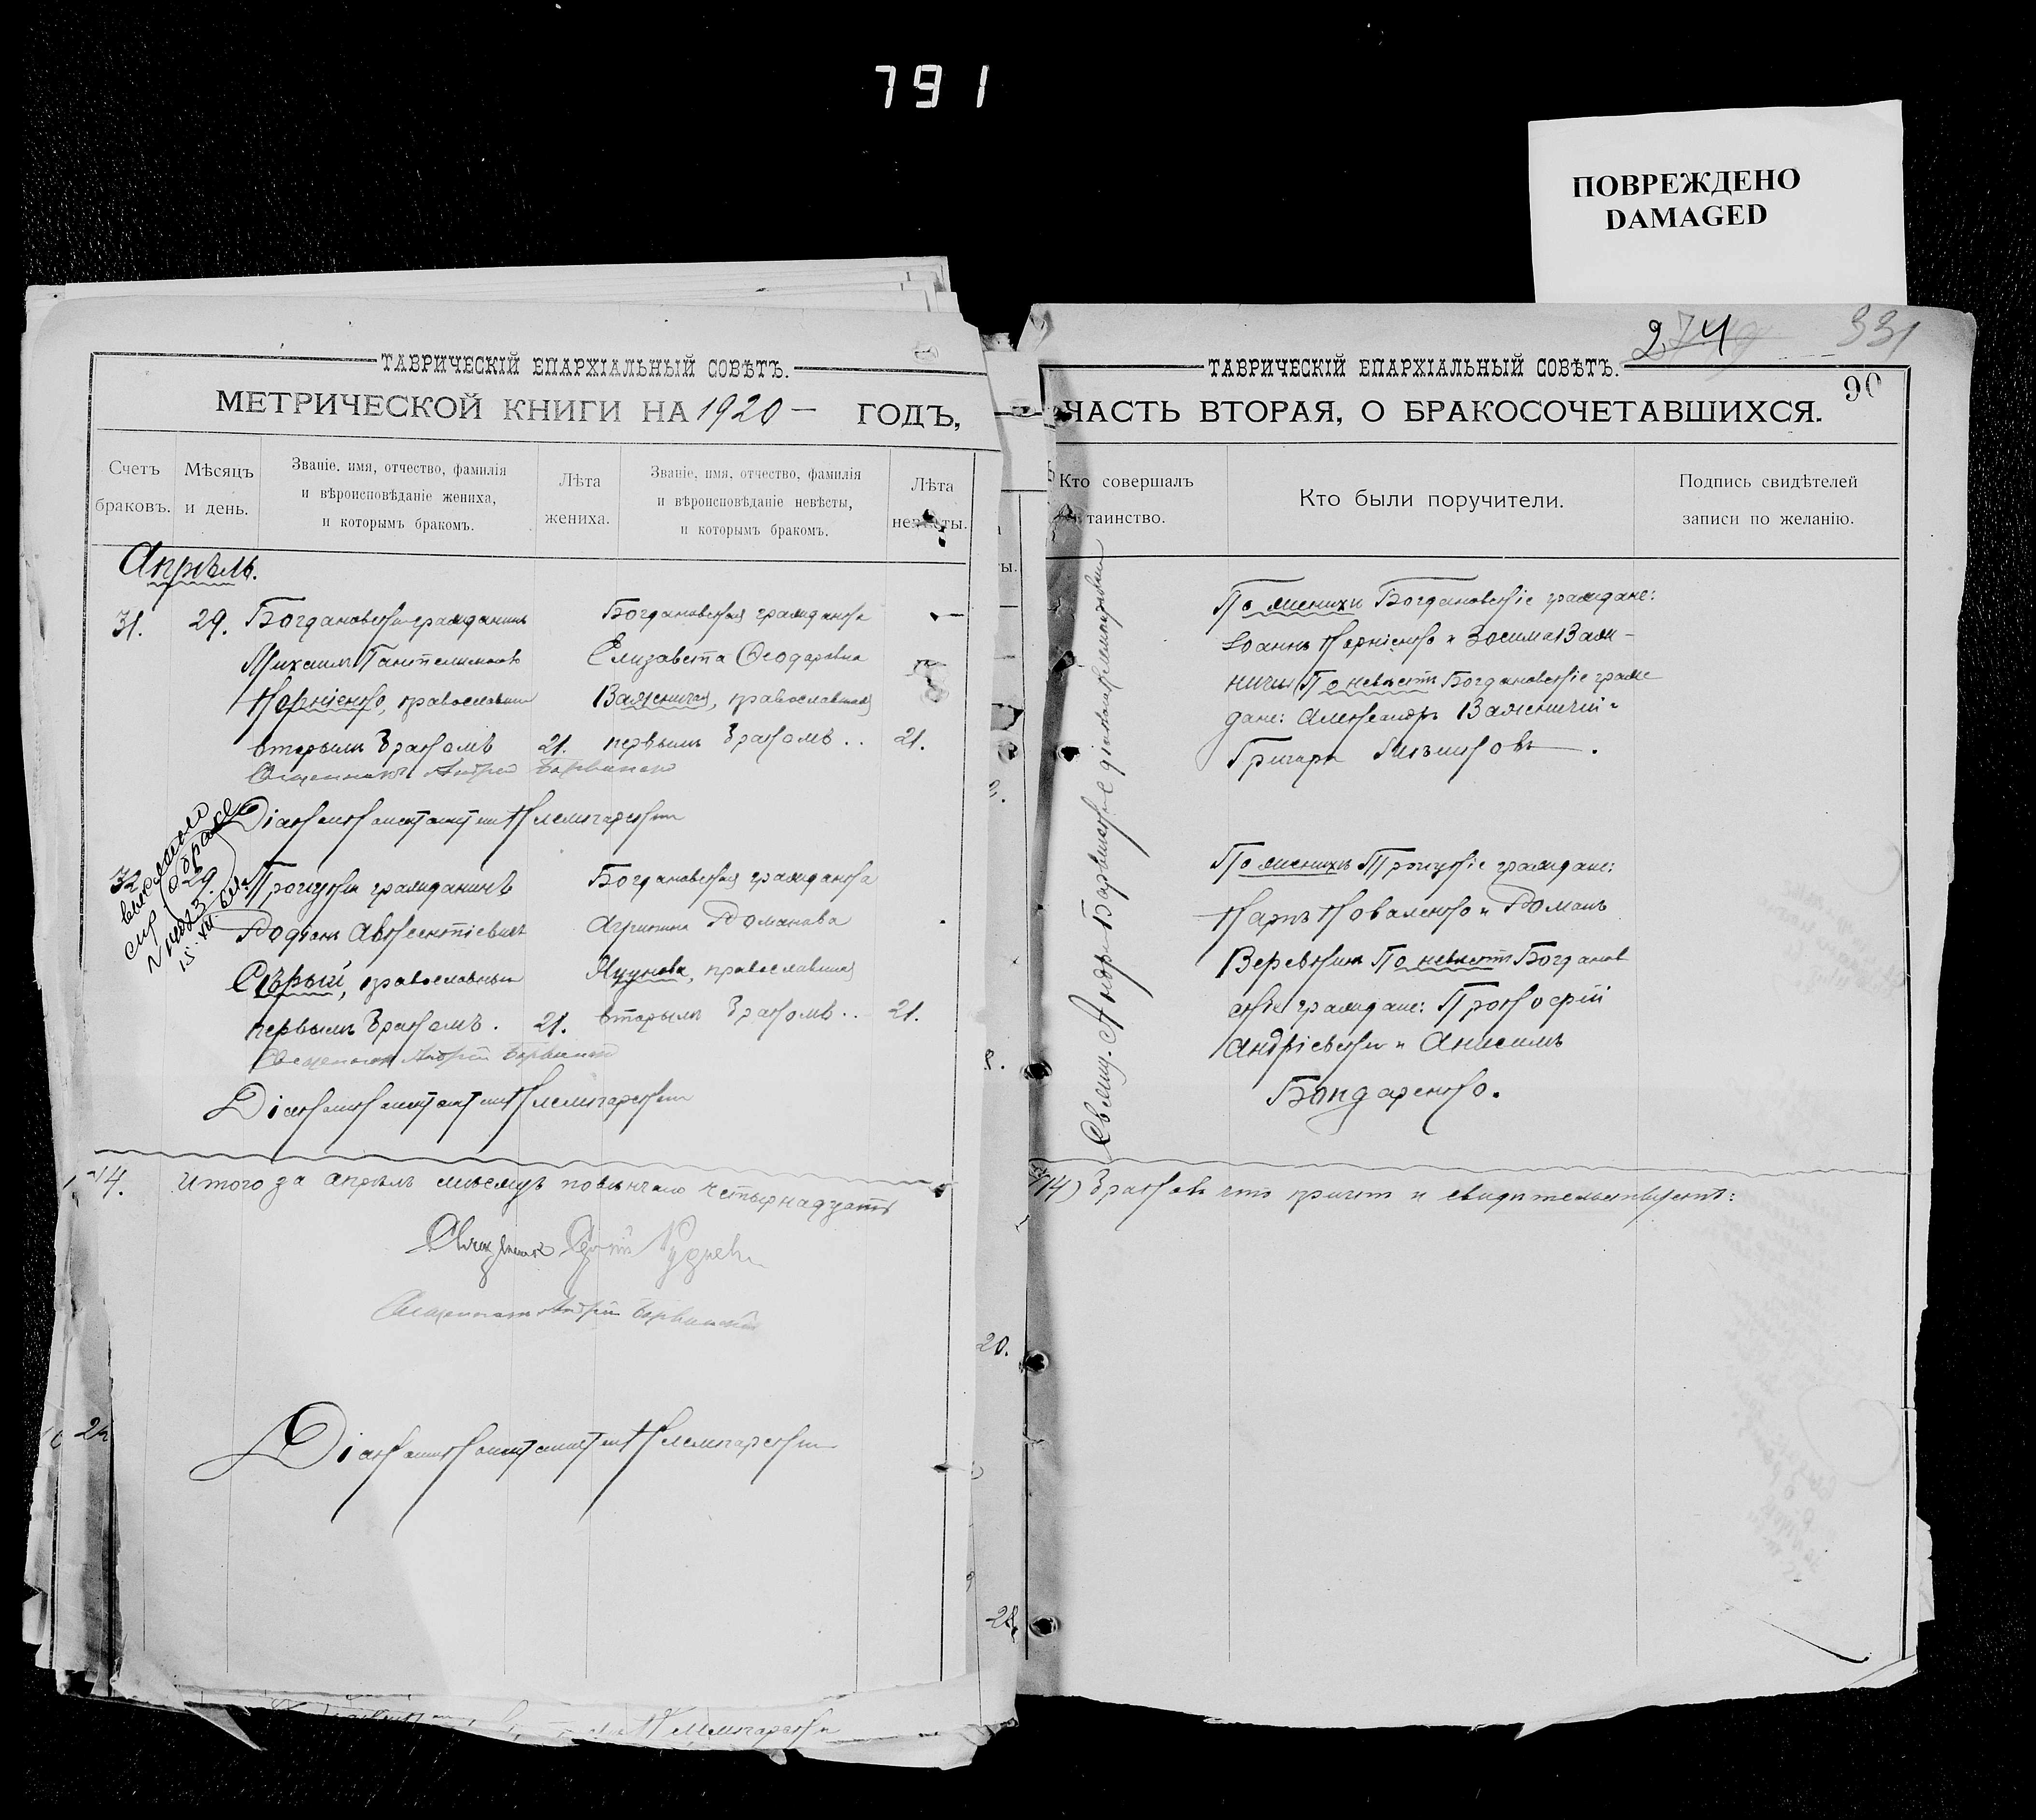 791
ПОВРЕЖДЕНО
DAMAGED
ТАВРИЧЕСКІЙ ЕПАРХІАЛЬНЫЙ СОВѢТЪ.
МЕТРИЧЕСКОЙ КНИГИ НА 1920 — ГОДЪ,
Счетъ браковъ.
Мѣсяцъ и день.
Званіе, имя, отчество, фамилія
и вѣроисповѣданіе жениха,
и которымъ бракомъ.
Лѣта
жениха.
Званіе, имя, отчество, фамилія
и вѣроисповѣданіе невѣсты,
и которымъ бракомъ.
Лѣта
невѣсты.
Апрѣль.
31. 29. Богдановскій гражданинъ
Михаилъ Пантелимоновъ
Корніенко, православный
вторымъ бракомъ 21.
Богдановская гражданка
Елизавета Ѳеодоровна
Важничая, православная
первымъ бракомъ .. 21.
Священникъ Андрей Барвинскій
Діаконъ Константинъ Клемпарскій
32. 29. Троицкій гражданинъ
Родіонъ Авксентіевичъ
Сѣрый, православный
первымъ бракомъ. 21.
Богдановская гражданка
Агрипина Романова
православная
вторымъ бракомъ .. 21.
о браке
Священникъ Андрей Барвинскій
Діаконъ Константинъ Клемпарскій
14. Итого за апрѣль мѣсяцъ повѣнчано четырнадцать
Священникъ
Священникъ Андрей Барвинскій
Діаконъ Константинъ Клемпарскій
274 331
90
ТАВРИЧЕСКІЙ ЕПАРХІАЛЬНЫЙ СОВѢТЪ.
ЧАСТЬ ВТОРАЯ, О БРАКОСОЧЕТАВШИХСЯ.
Кто совершалъ
таинство.
Кто были поручители.
Подпись свидѣтелей
записи по желанію.
Свящ. Андрей Барвинскій
По женихѣ Богдановскіе граждане:
Іоаннъ Корніенко и Зосима Важ-
ничій По невѣстѣ Богдановскіе граж
дане: Александръ Важничій и
Григорій
По женихѣ Троицкіе граждане:
Карпъ Коваленко и Романъ
Веревкинъ По невѣстѣ Богданов
скіе граждане: Прокофій
Андріевскій и Анисимъ
Бондаренко.
(14) браковъ что причтъ и свидѣтельствуетъ: